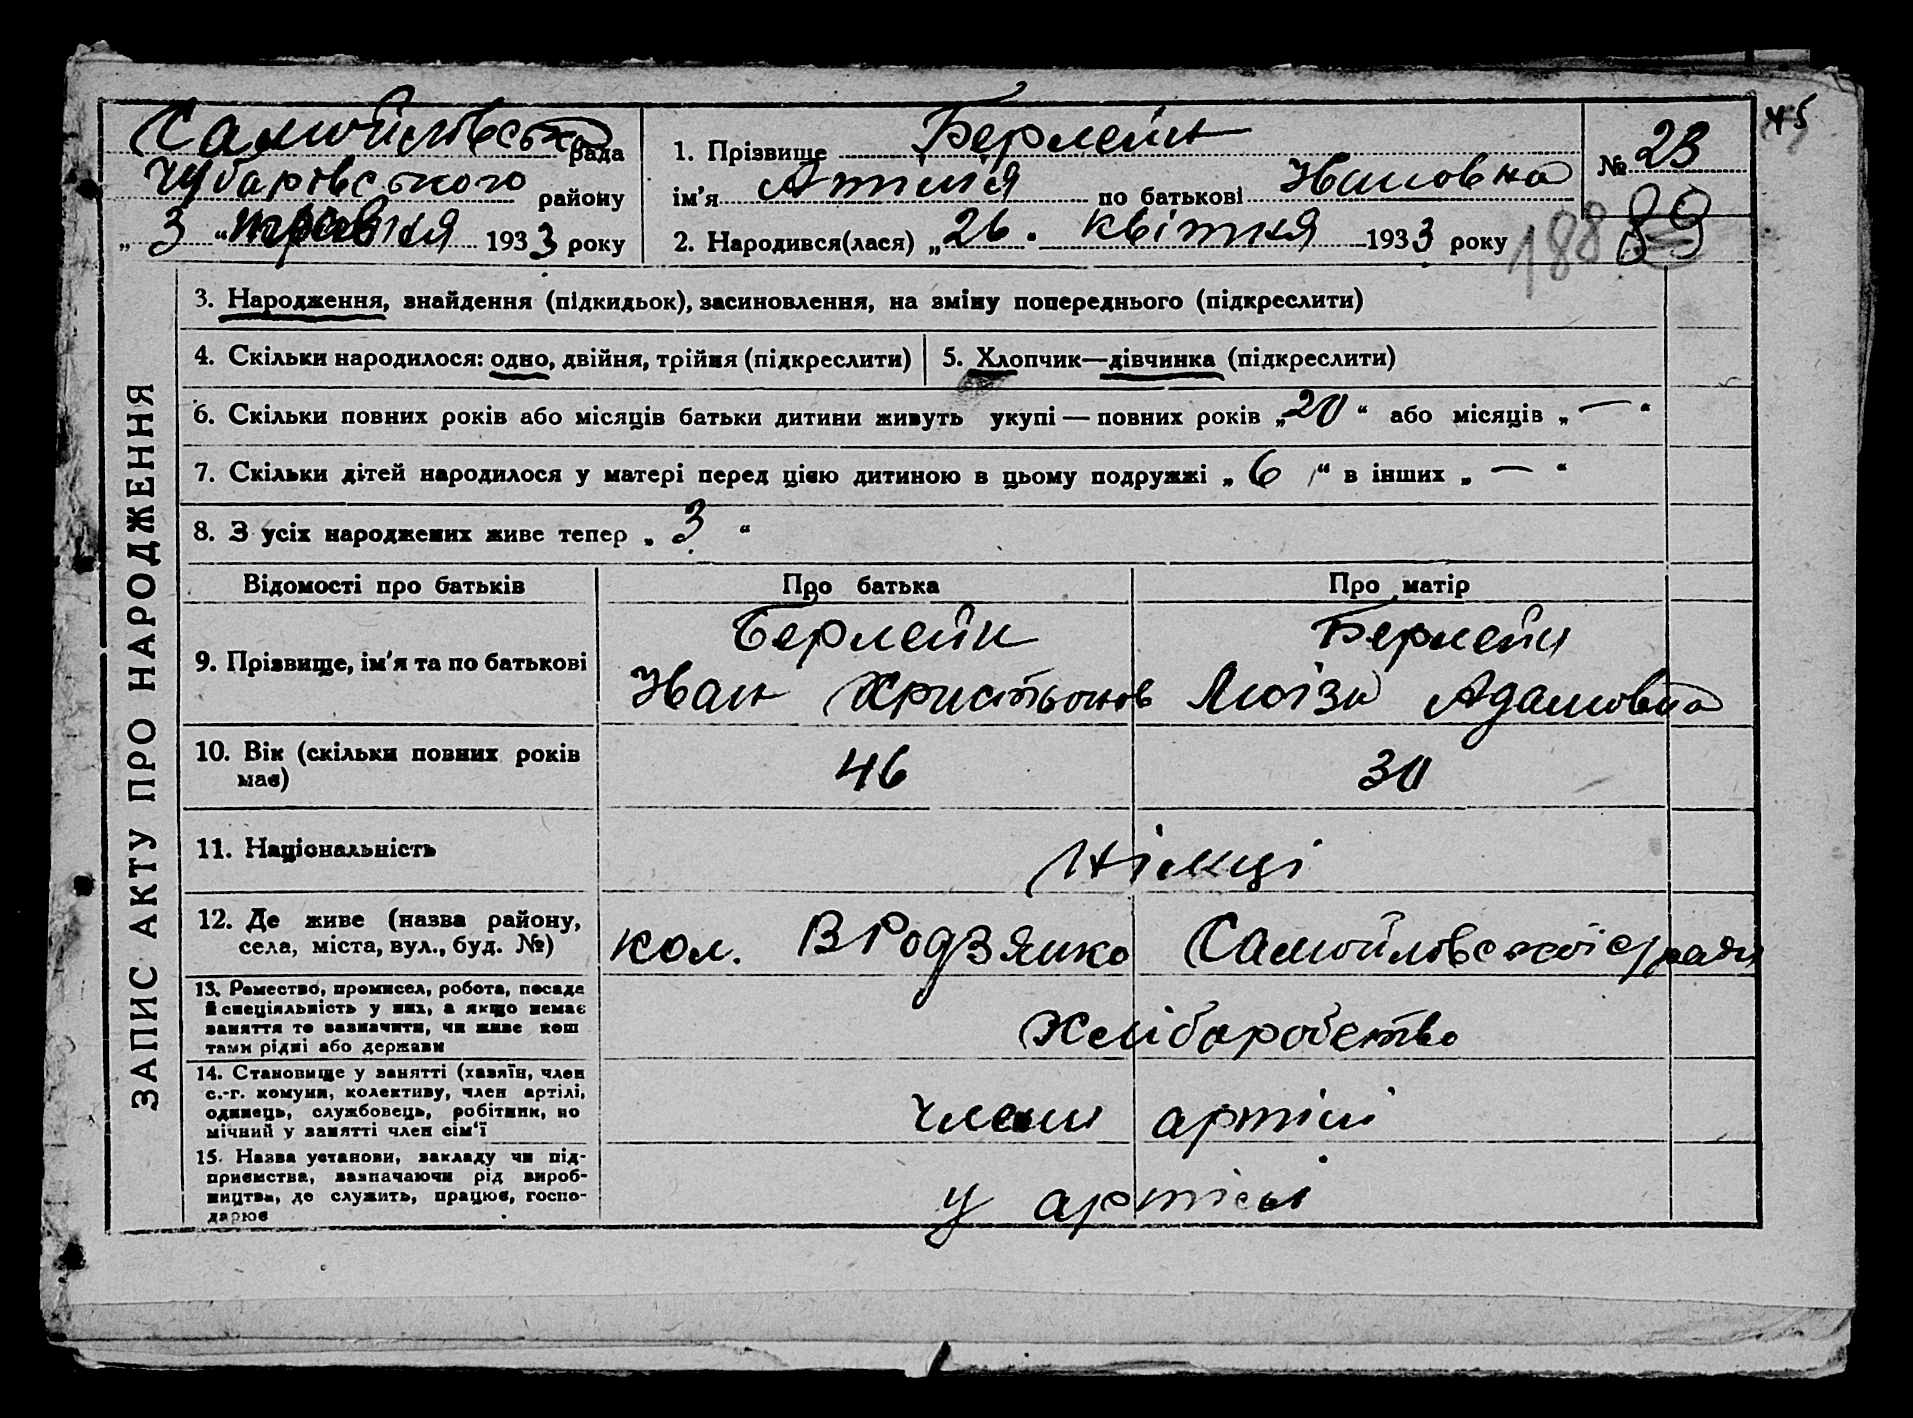 45
Самойлівська рада
Чубарівського району
„ 3 “ травня 1933 року
1. Прізвище Берлейн
ім'я Атілія по батькові Ивановна
2. Народився(лася) „26. квітня 1933 року
№ 23
188 89
ЗАПИС АКТУ ПРО НАРОДЖЕННЯ
3. Народження, знайдення (підкидьок), засиновлення, на зміну попереднього (підкреслити)
4. Скільки народилося: одно, двійня, трійня (підкреслити)
5. Хлопчик—дівчинка (підкреслити)
6. Скільки повних років або місяців батьки дитини живуть укупі — повних років „20“ або місяців „—“
7. Скільки дітей народилося у матері перед цією дитиною в цьому подружжі „6“ в інших „—“
8. З усіх народжених живе тепер „3“
Відомості про батьків Про батька Про матір
9. Прізвище, ім'я та по батькові
Берлейн Берлейн
Иван Христьонов Люіза Адамовна
10. Вік (скільки повних років
має)
46 30
11. Національність
Німці
12. Де живе (назва району,
села, міста, вул., буд. №)
кол. В Родзянко Самойлівської с/ради
13. Ремество, промисел, робота, посада
й спеціяльність у них, а якщо немає
заняття то зазначити, чи живе кош
тами рідні або держави
Хліборобство
14. Становище у занятті (хазяїн, член
с.-г. комуни, колективу, член артілі,
одинець, службовець, робітник, по
мічний у занятті член сім'ї
члени артілі
15. Назва установи, закладу чи під-
приємства, зазначаючи рід вироб-
ництва, де служить, працює, госпо-
дарює
у артілі